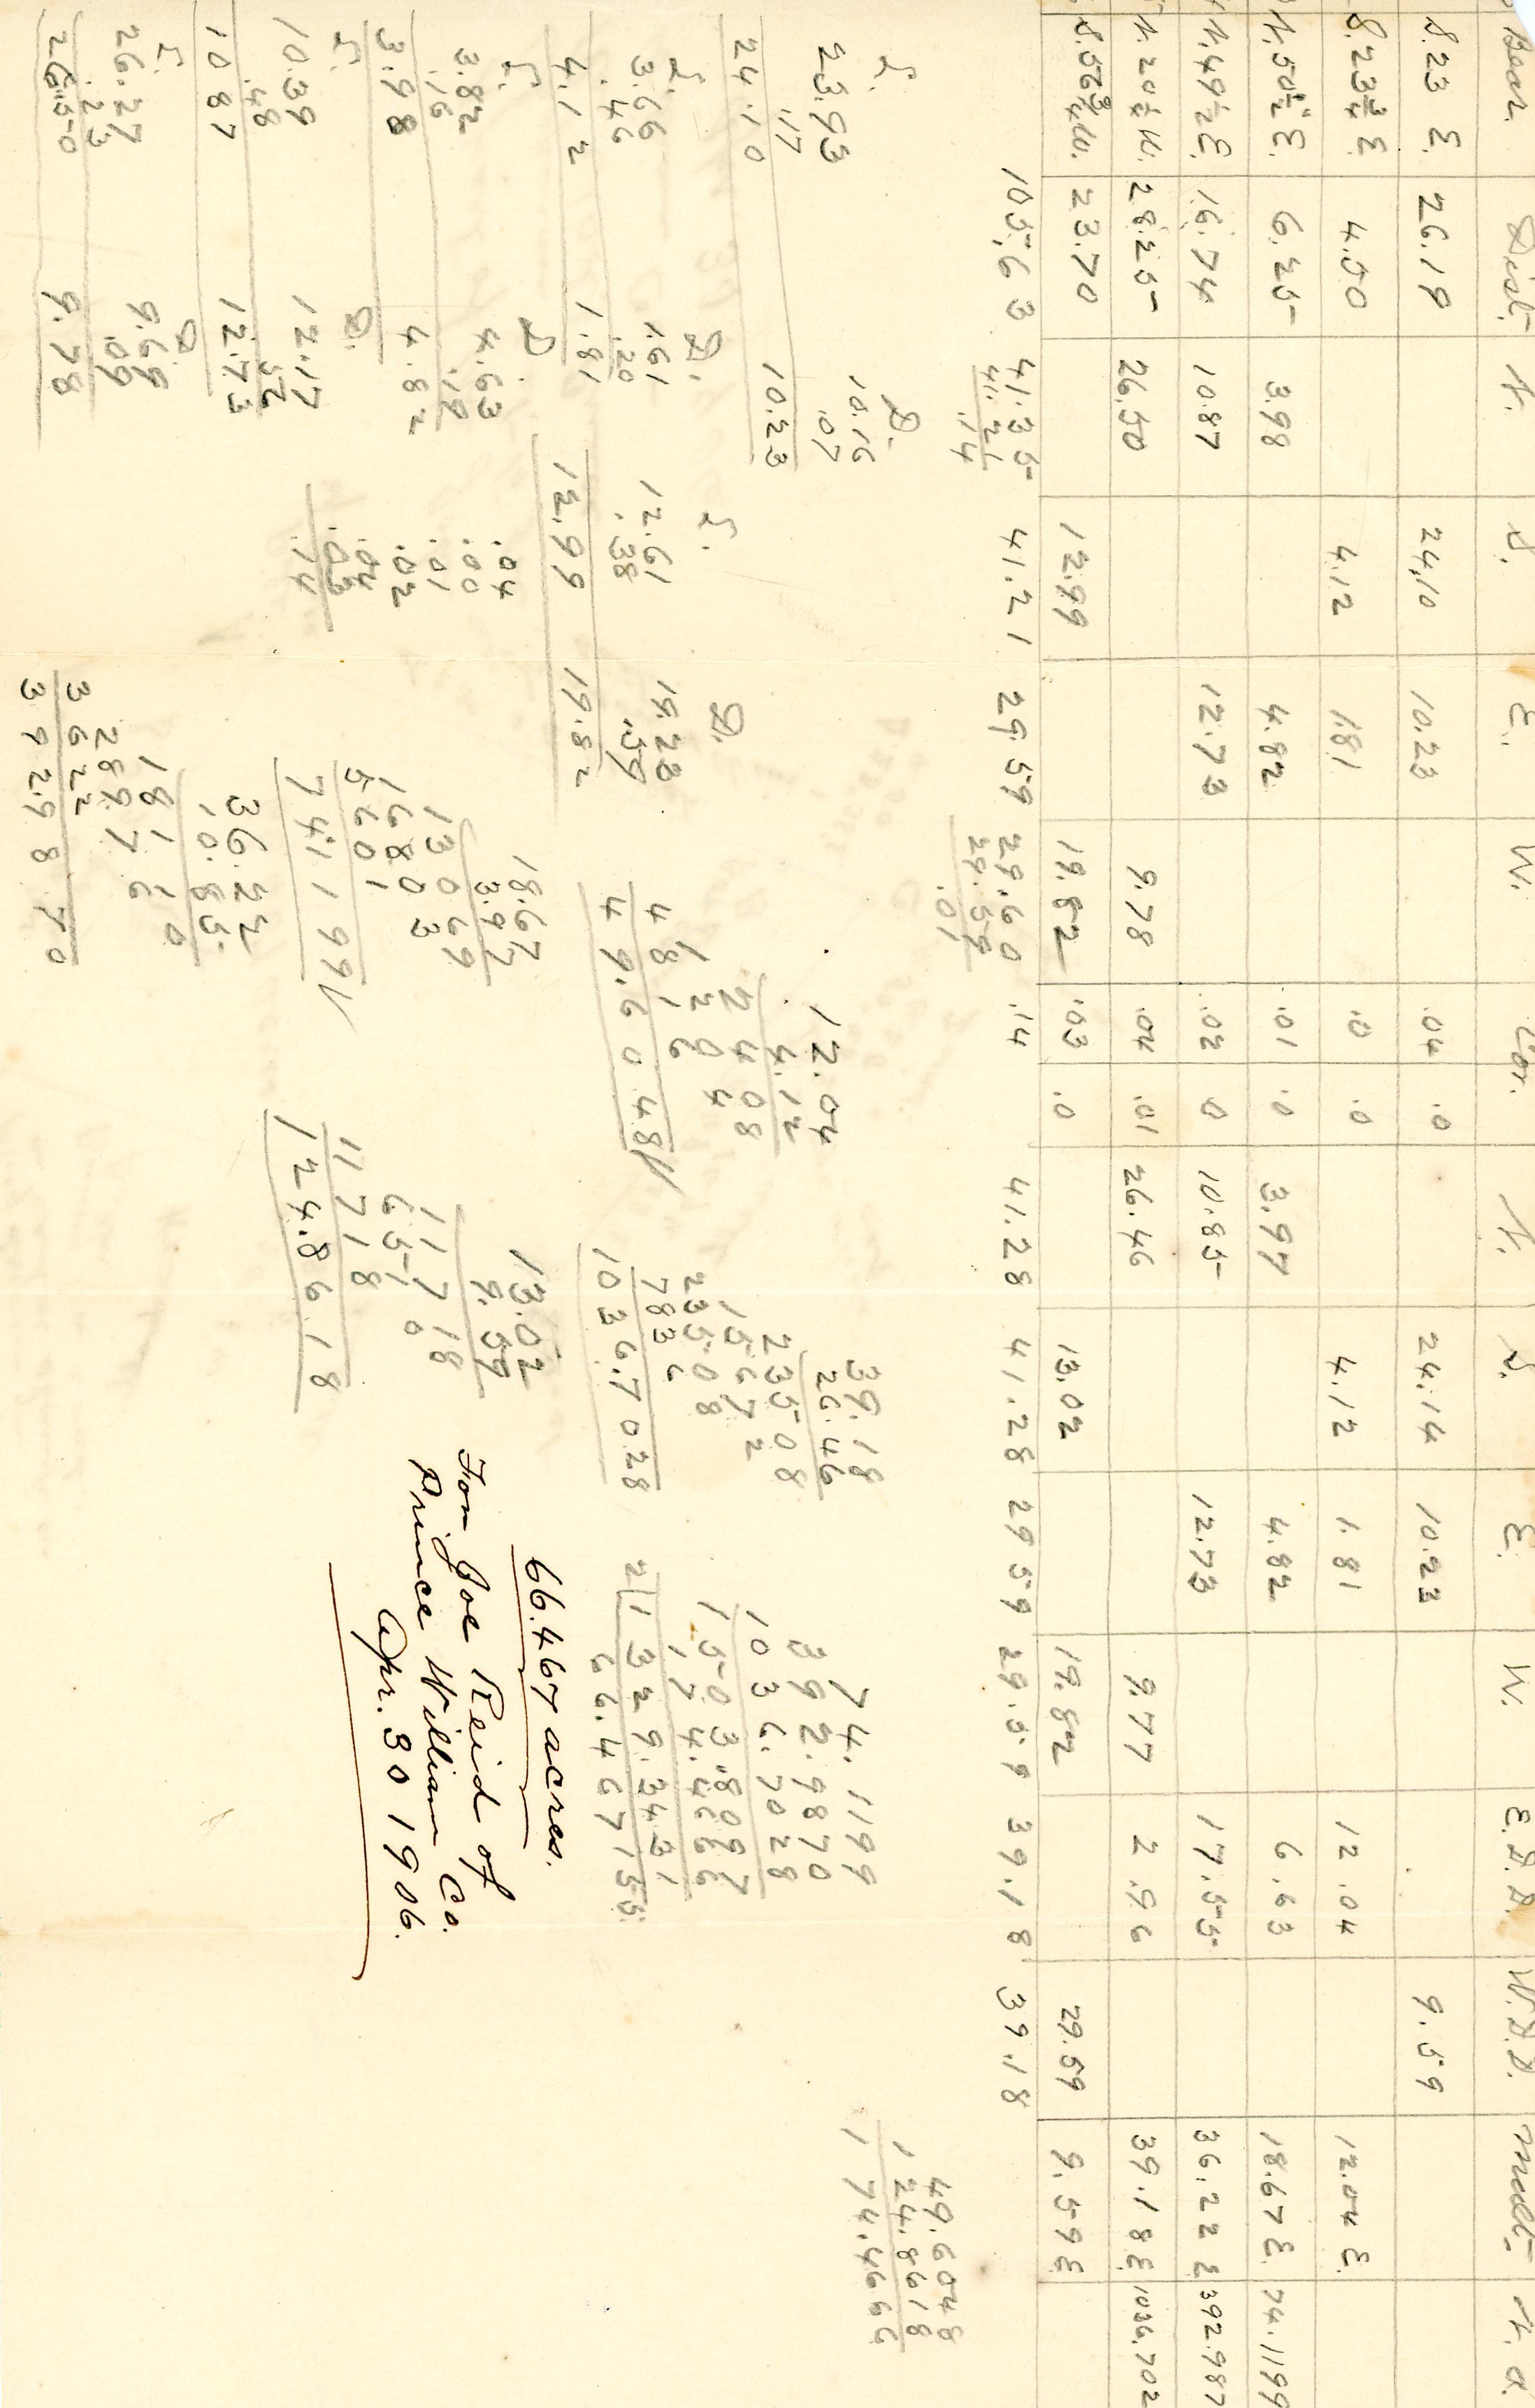 Bear. Dist. N. S. E. W. Cor. N. S. E. W. E.D.D. W.D.D. Mult. N.A.
S. 23 E. 26.19 24.10 10.23 .04 .0 24.14 10.23 9.59
S. 23¾ E. 4.50 4.12 1.81 .0 .0 4.12 1.81 12.04 12.04 E.
N. 50½ E. 6.25 3.98 4.82 .01 .0 3.97 4.82 6.63 18.67 E. 74.1199
N. 49½ E. 16.74 10.87 12.73 .02 .0 10.85 12.73 17.55 36.22 E 392.987
N. 20¼ W. 28.25 26.50 9.78 .04 .01 26.46 9.77 2.96 39.18 E 1036.702
S. 56¾ W. 23.70 12.99 19.82 .03 .0 13.02 19.82 29.59 9.59 E
105.63 41.35 41.21 29.59 29.60 .14 41.28 41.28 29.59 29.59 39.18 39.18
41.21 29.59
.14 .01
L. D.
23.93 10.16
.17 .07
24.10 10.23
L. D.
3.66 1.61
.46 .20
4.12 1.81
L. D.
3.82 4.63
.16 .19
3.98 4.82
L. D.
10.39 12.17
.48 .56
10 87 12.73
L. D.
26.27 9.69
.23 .09
26.50 9.78
L. D.
12.61 19.28
.38 .54
12.99 19.82
.04
.00
.01
.02
.04
.03
.14
12.04
4.12
2408
1204
4816
49.6048
39.18
26.46
23508
15672
23508
7836
1036.7028
18.67
3.97
13069
16803
5601
74.1199
13.02
9.59
11718
6510
11718
124.8618
36.22
10.85
18110
28976
3622
392.9870
74.1199
392.9870
1036.7028
1503.8097
174.4666
2|1329.3431
66.46715 5
49.6048
124.8618
174.4666
66.467 acres.
For Joe Reid of
Prince William Co.
Apr. 30 1906.